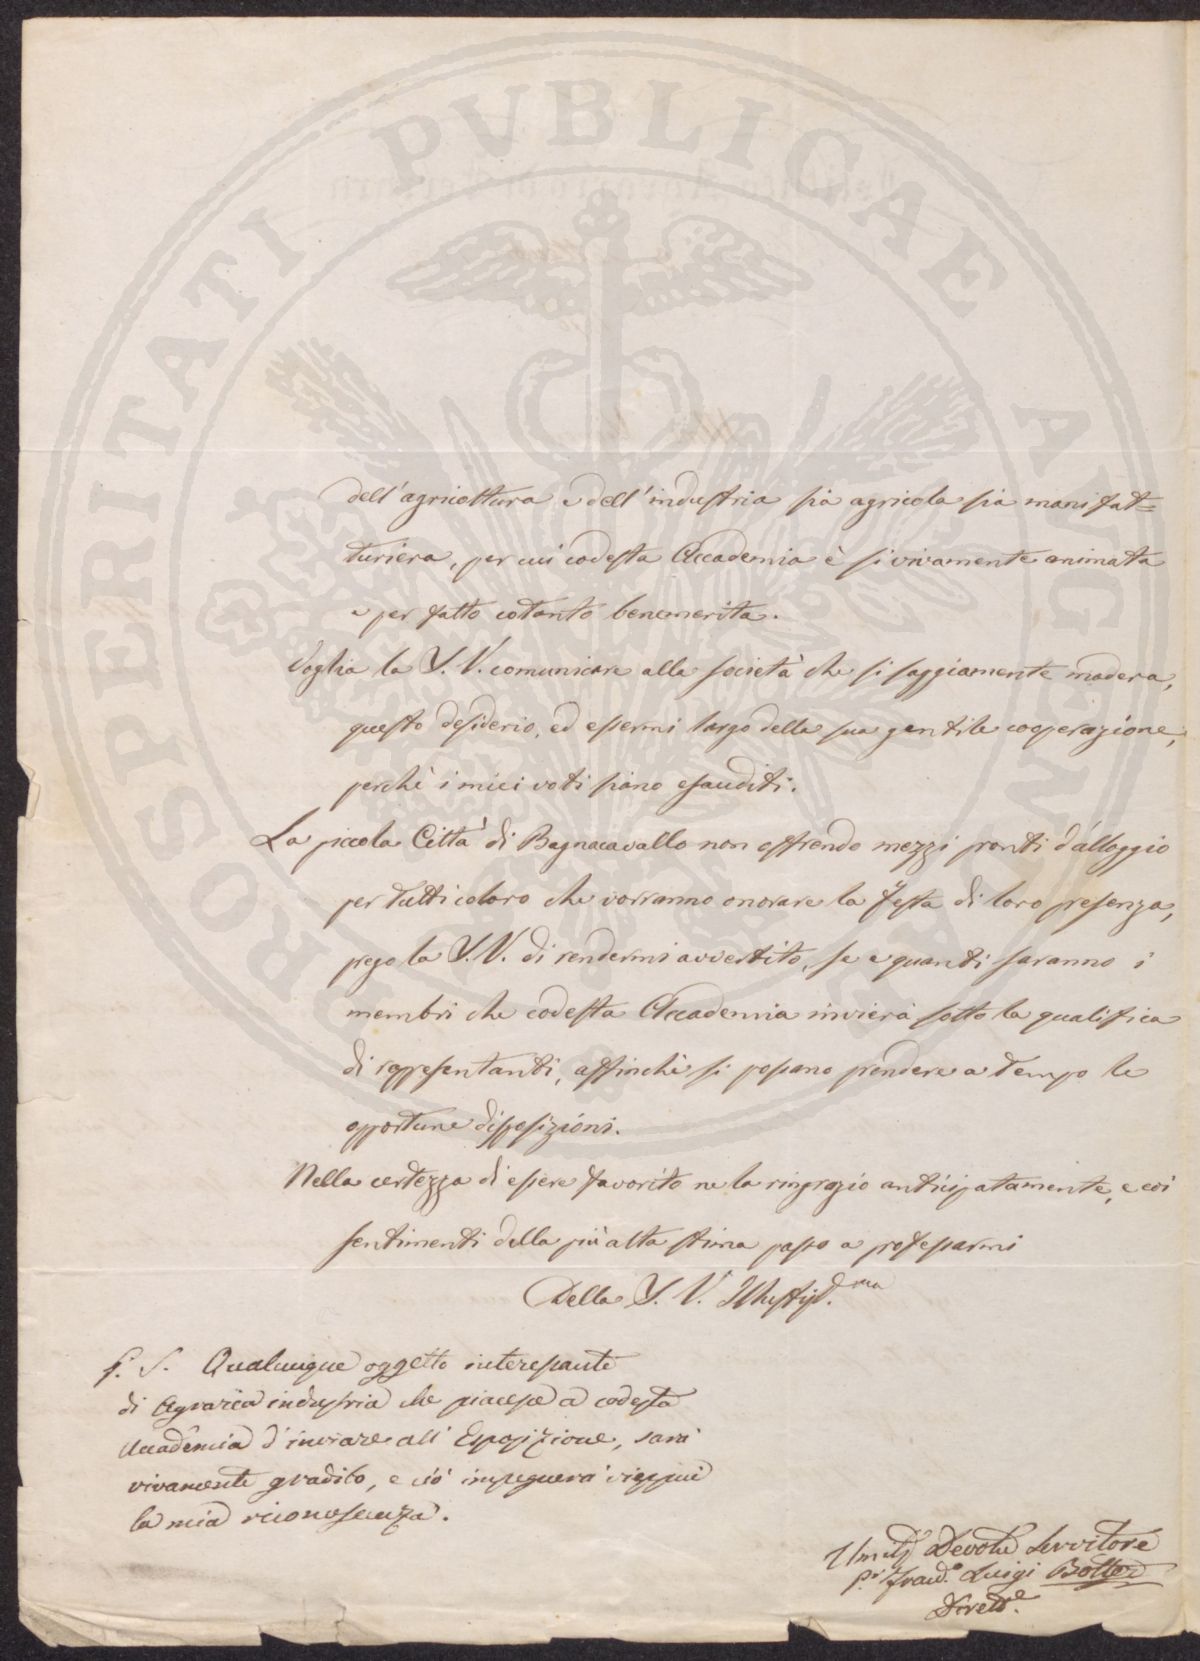 PROSPERITATI PVBLICAE AVGENDAE
dell'agricoltura e dell'industria sia agricola sia manifat=
turiera, per cui codesta Accademia è sì vivamente animata
e per fatto cotanto benemerita.
Voglia la S. V. comunicare alla società che sì saggiamente modera,
questo desiderio, ed essermi largo della sua gentile cooperazione,
perchè i miei voti siano esauditi.
La piccola Città di Bagnacavallo non offrendo mezzi pronti d'alloggio
per tutti coloro che vorranno onorare la festa di loro presenza,
prego la S. V. di rendermi avvertito, se e quanti saranno i
membri che codesta Accademia invierà sotto la qualifica
di rappresentanti, affinchè si possano prendere a tempo le
opportune disposizioni.
Nella certezza di essere favorito ne la ringrazio anticipatamente, e coi
sentimenti della più alta stima passo a professarmi
Della S. V. Illustriss.ma
P. S. Qualunque oggetto interessante
di Agraria industria che piacesse a codesta
Accademia d'inviare all'Esposizione, sarà
vivamente gradito, e ciò impegnerà vieppiù
la mia riconoscenza.
Devot. Servitore
Franc.o Luigi Botter
Dirett.e